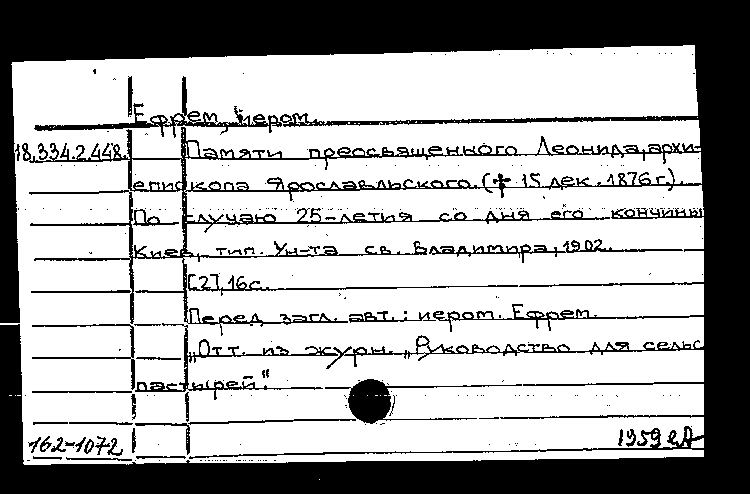 Ефрем, иером.
18.334.2.448. Памяти преосвященного Леонида, архи-
епископа Ярославльского. († 15 дек. 1876 г.).
По случаю 25-летия со дня его кончины
Киев, тип. Ун-та св. Владимира, 1902.
[2], 16 с.
Перед загл. авт.: иером. Ефрем.
„Отт. из журн. „Руководство для сельс
пастырей".
162-1072 1959